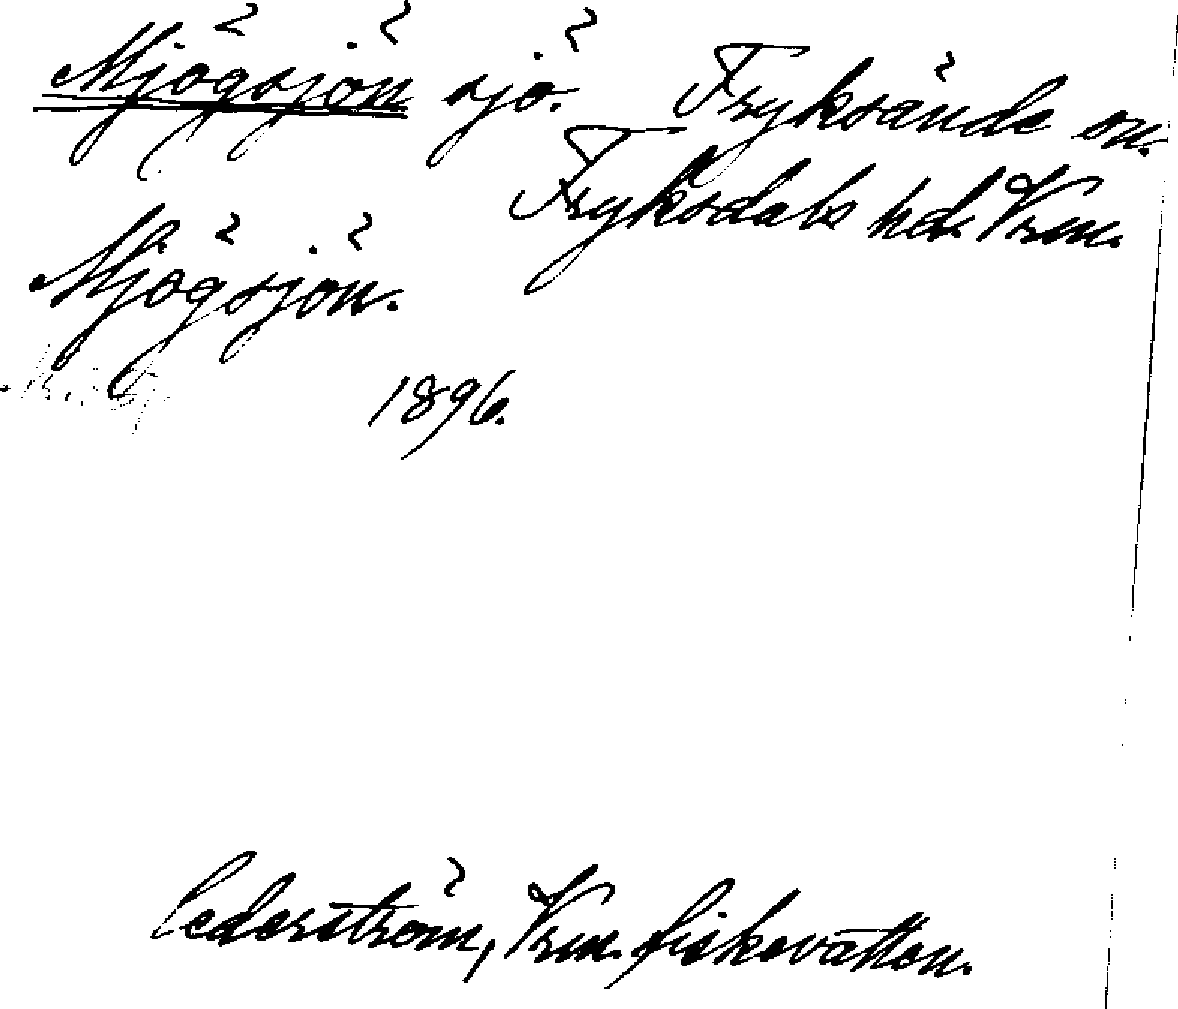 Mjögsjön sjö. Fryksände sn.
Fryksdals hd. Vrm.
Mjögsjön.
1896.
Cederström, Vrm. fiskevatten.